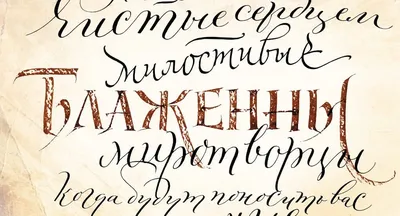 Чистые сердцем
милостивые
Блаженны
миротворцы
Когда будут поносить вас